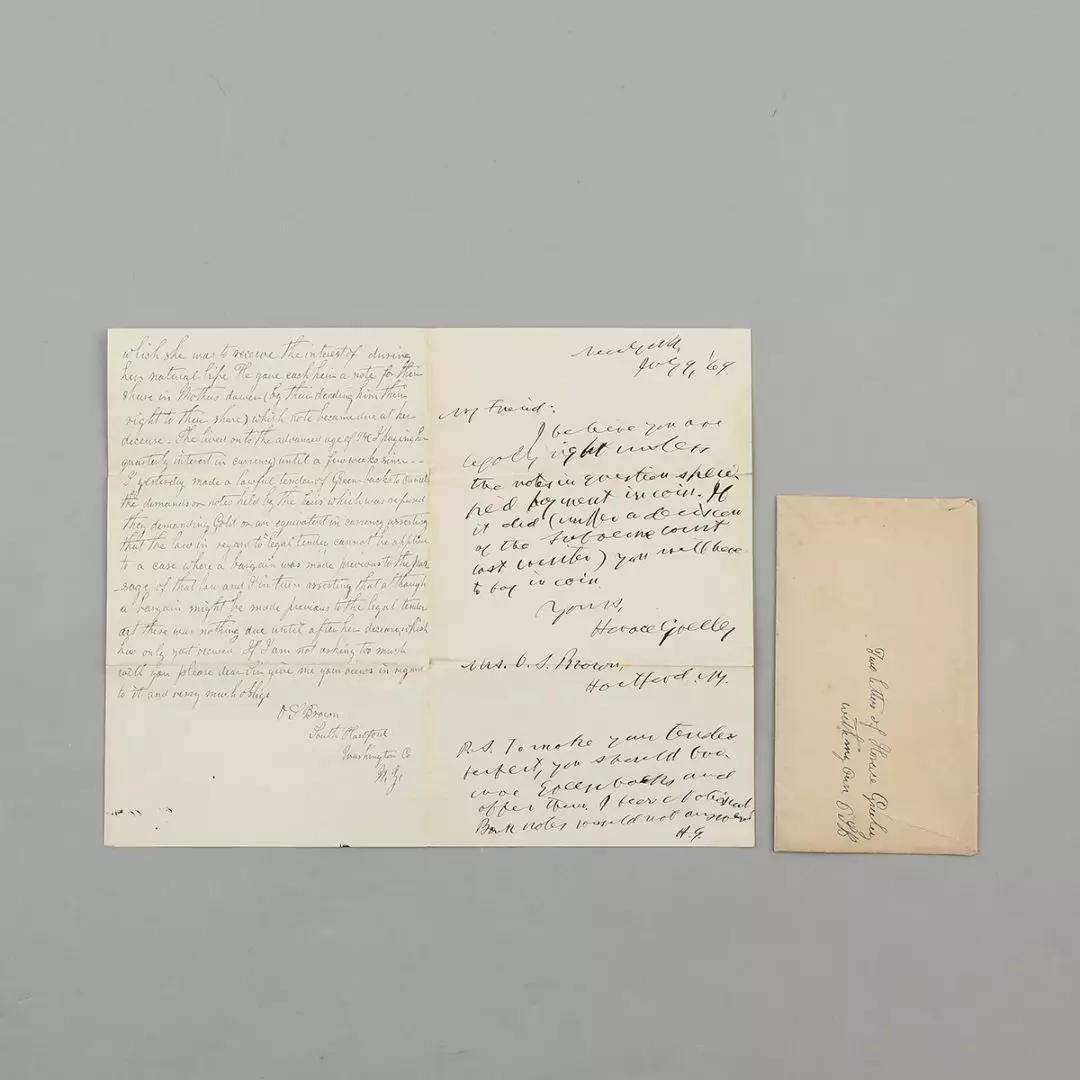 which she was to receive the interest of during
her natural life He gave each heir a note for their
share in Mothers dower (by their deeding him their
right to their share) which note became due at her
decease. She lived on to the advanced age of 94 I paying her
quarterly interest in currency until a few weeks since --
I yesterday made a lawful tender of Green-backs to
the demands or notes held by the heirs which was refused
they demanding Gold or an equivalent in currency asserting
that the law in regard to legal tender cannot be applied
to a case where a bargain was made previous to the pas
-sage of that law and I in turn asserting that although
a bargain might be made previous to the legal tender
act there was nothing due until after her decease, which
has only just occured If I am not asking too much
will you please dear Sir give me your views in regard
to it and verry much oblige
O S Brown
South Hartford
Washington Co
N. Y.
New York,
July 9, '69.
My Friend:
I believe you are
legally right unless
the notes in question speci-
fied payment in coin. If
it did (under a decision
of the Supreme Court
last winter) you will have
to pay in coin
Yours,
Horace Greeley
Mrs. O. S. Brown,
Hartford, N.Y.
P.S. To make your tender
perfect, you should
Greenbacks and
offer them. I fear National
Bank notes would not answer
H.G.
Two letters of Horace Greeley
with my own